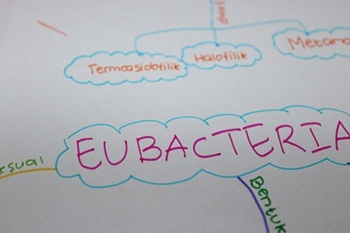 Termoasidofilik
Halofilik
Metano
EUBACTERIA
sual
Bentuk